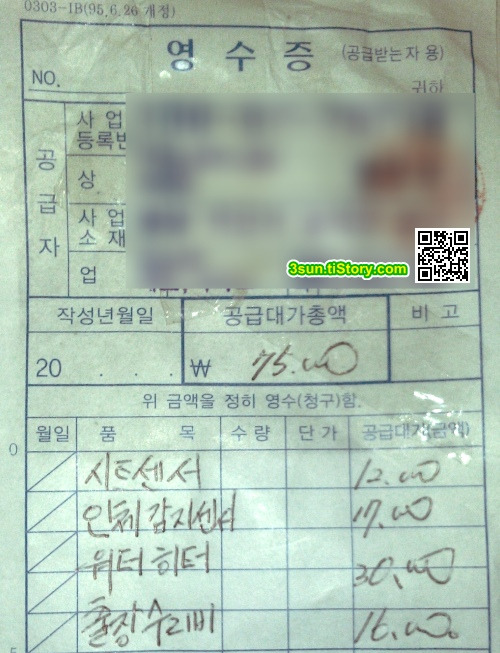 0303-1B(95.6.26 개정)
영 수 증 (공급받는자 용)
NO. 귀하
공급자
사 업
등록번
상
사 업
소 재
업
3sun.tiStory.com
작성년월일 공급대가총액 비 고
20 . . . ₩ 75.000
위 금액을 정히 영수(청구)함.
월일 품 목 수 량 단 가 공급대가(금액)
시트센서 12.000
인체감지센서 17.000
워터히터 30.000
출장수리비 16.000
0
5